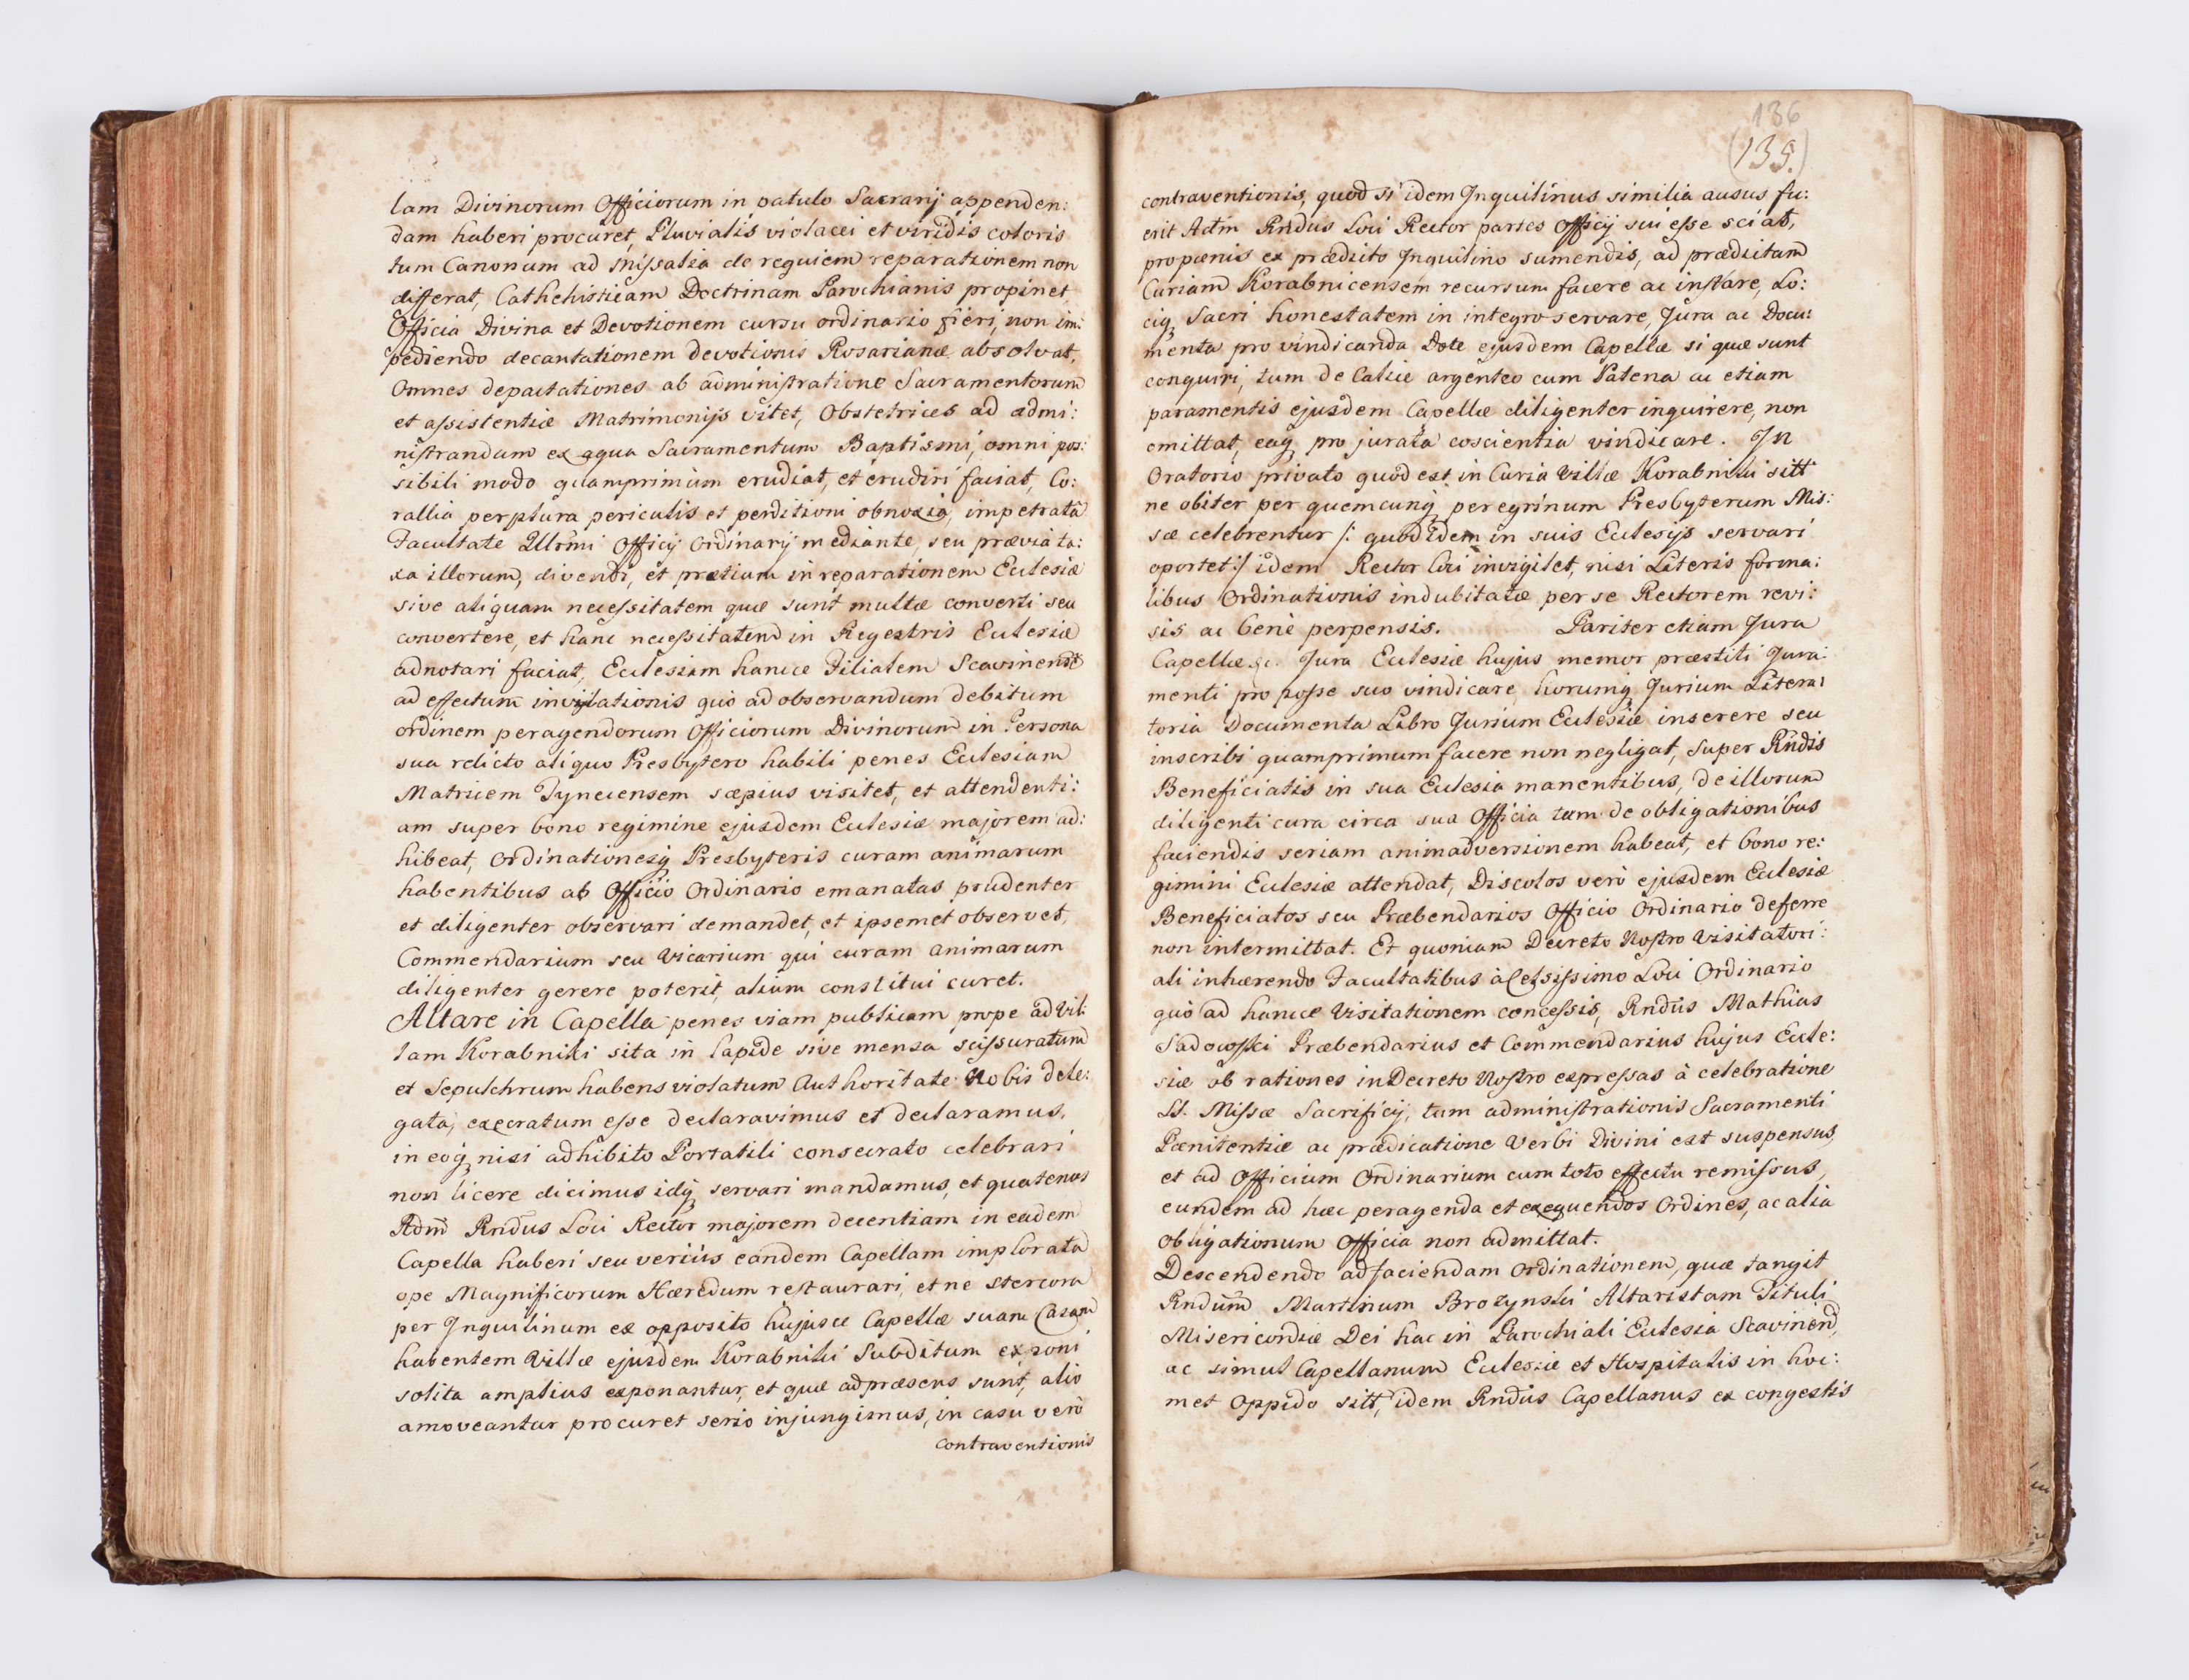 lam Divinorum Officiorum in patulo Sacrarij appenden:
dam haberi procuret, Pluvialis violacei et viridis coloris
tum Canonum ad Missalia de requiem reparationem non
differat, Cathehisticam Doctrinam Parochianis propinet,
Officia Divina et Devotionem cursu ordinario fieri, non im:
pediendo decantationem devotionis Rosarianæ absolvat,
Omnes depactationes ab administratione Sacramentorum
et assistentiæ Matrimonijs vitet, Obstetrices ad admi:
nistrandum ex aqua Sacramentum Baptismi, omni pos:
sibili modo quamprimùm erudiat, et erudiri faciat, Co:
rallia perplura periculis et perditioni obnoxia, impetratâ
Facultate Illrmi Officij Ordinarij mediante, seu prævia ta:
xa illorum, divendi, et prætium in reparationem Eclesiæ
sive aliquam necessitatem quæ sunt multæ converti seu
convertere, et hanc necessitatem in Regestris Eclesiæ
adnotari faciat, Eclesiam hancce Filialem Scavinens
ad effectum invigilationis quò ad observandum debitum
ordinem peragendorum Officiorum Divinorum in Persona
sua relicto aliquo Presbytero habili penes Eclesiam
Matricem Tynecensem sæpius visitet, et attendenti:
am super bono regimine ejusdem Eclesiæ majorem ad:
hibeat, Ordinationesq Presbyteris curam animarum
habentibus ab Officio Ordinario emanatas prudenter
et diligenter observari demandet, et ipsemet observet,
Commendarium seu Vicarium qui curam animarum
diligenter gerere poterit, alium constitui curet.
Altare in Capella penes viam publicam prope ad Vil:
lam Korabniki sita in lapide sive mensa scissuratum
et Sepulchrum habens violatum Authoritate Nobis dele:
gata, execratum esse declaravimus et declaramus,
in eoq nisi adhibito Portatili consecrato celebrari
non licere dicimus idq servari mandamus, et quatenus
Adm Rndus Loci Rector majorem decentiam in eadem
Capella haberi seu veriùs eandem Capellam implorata
ope Magnificorum Hæredum restaurari, et ne stercora
per Inquilinum ex opposito hujusce Capellæ suam Casam
habentem Villæ ejusdem Korabniki Subditum exponi
solita amplius exponantur, et quæ ad præsens sunt, aliò
amoveantur procuret seriò injungimus, in casu verò
contraventionis
136
(135.)
contraventionis, quòd si idem Inquilinus similia ausus fu:
erit Adm Rndus Loci Rector partes Officij sui esse sciat,
pro pœnis ex prædicto Inquilino sumendis, ad prædictam
Curiam Korabnicensem recursum facere ac instare, Lo:
ciq Sacri honestatem in integro servare, Jura ac Docu:
menta pro vindicanda Dote ejusdem Capellæ si quæ sunt
conquiri, tum de Calice argenteo cum Patena ac etiam
paramentis ejusdem Capellæ diligenter inquirere, non
omittat, eaq pro jurata coscientia vindicare. In
Oratorio privato quod est in Curia Villæ Korabniki sitt
ne obiter per quemcunq peregrinum Presbyterum Mis:
sæ celebrentur /: quod idem in suis Eclesijs servari
oportet :/ idem Rector loci invigilet, nisi Literis forma:
libus Ordinationis indubitatæ per se Rectorem revi:
sis ac benè perpensis. Pariter etiam Jura
Capellæ Jura Eclesiæ hujus memor præstiti Jura:
menti pro posse suo vindicare, horumq Jurium Litera:
toria Documenta Libro Jurium Eclesiæ inserere seu
inscribi quamprimum facere non negligat, super Rndis
Beneficiatis in sua Eclesia manentibus, de illorum
diligenti cura circa sua Officia tum de obligationibus
faciendis seriam animadversionem habeat, et bono re:
gimini Eclesiæ attendat, Discolos verò ejusdem Eclesiæ
Beneficiatos seu Præbendarios Officio Ordinario deferre
non intermittat. Et quoniam Decreto Nostro Visitatori:
ali inhærendo Facultatibus à Celsissimo Loci Ordinario
quò ad hancce Visitationem concessis, Rndus Mathias
Sadowski Præbendarius et Commendarius hujus Ecle:
siæ ob rationes in Decreto Nostro expressas à celebratione
SS. Missæ Sacrificij, tum administrationis Sacramenti
Pœnitentiæ ac prædicatione Verbi Divini est suspensus,
et ad Officium Ordinarium cum toto effectu remissus,
eundem ad hæc peragenda et exequendos Ordines, ac alia
obligationum Officia non admittat.
Descendendo ad faciendam Ordinationem, quæ tangit
Rndum Martinum Brozynski Altaristam Tituli
Misericordiæ Dei hac in Parochiali Eclesia Scavinen,
ac simul Capellanum Eclesiæ et Hospitalis in hoc:
met Oppido sitt, idem Rndus Capellanus ex congestis